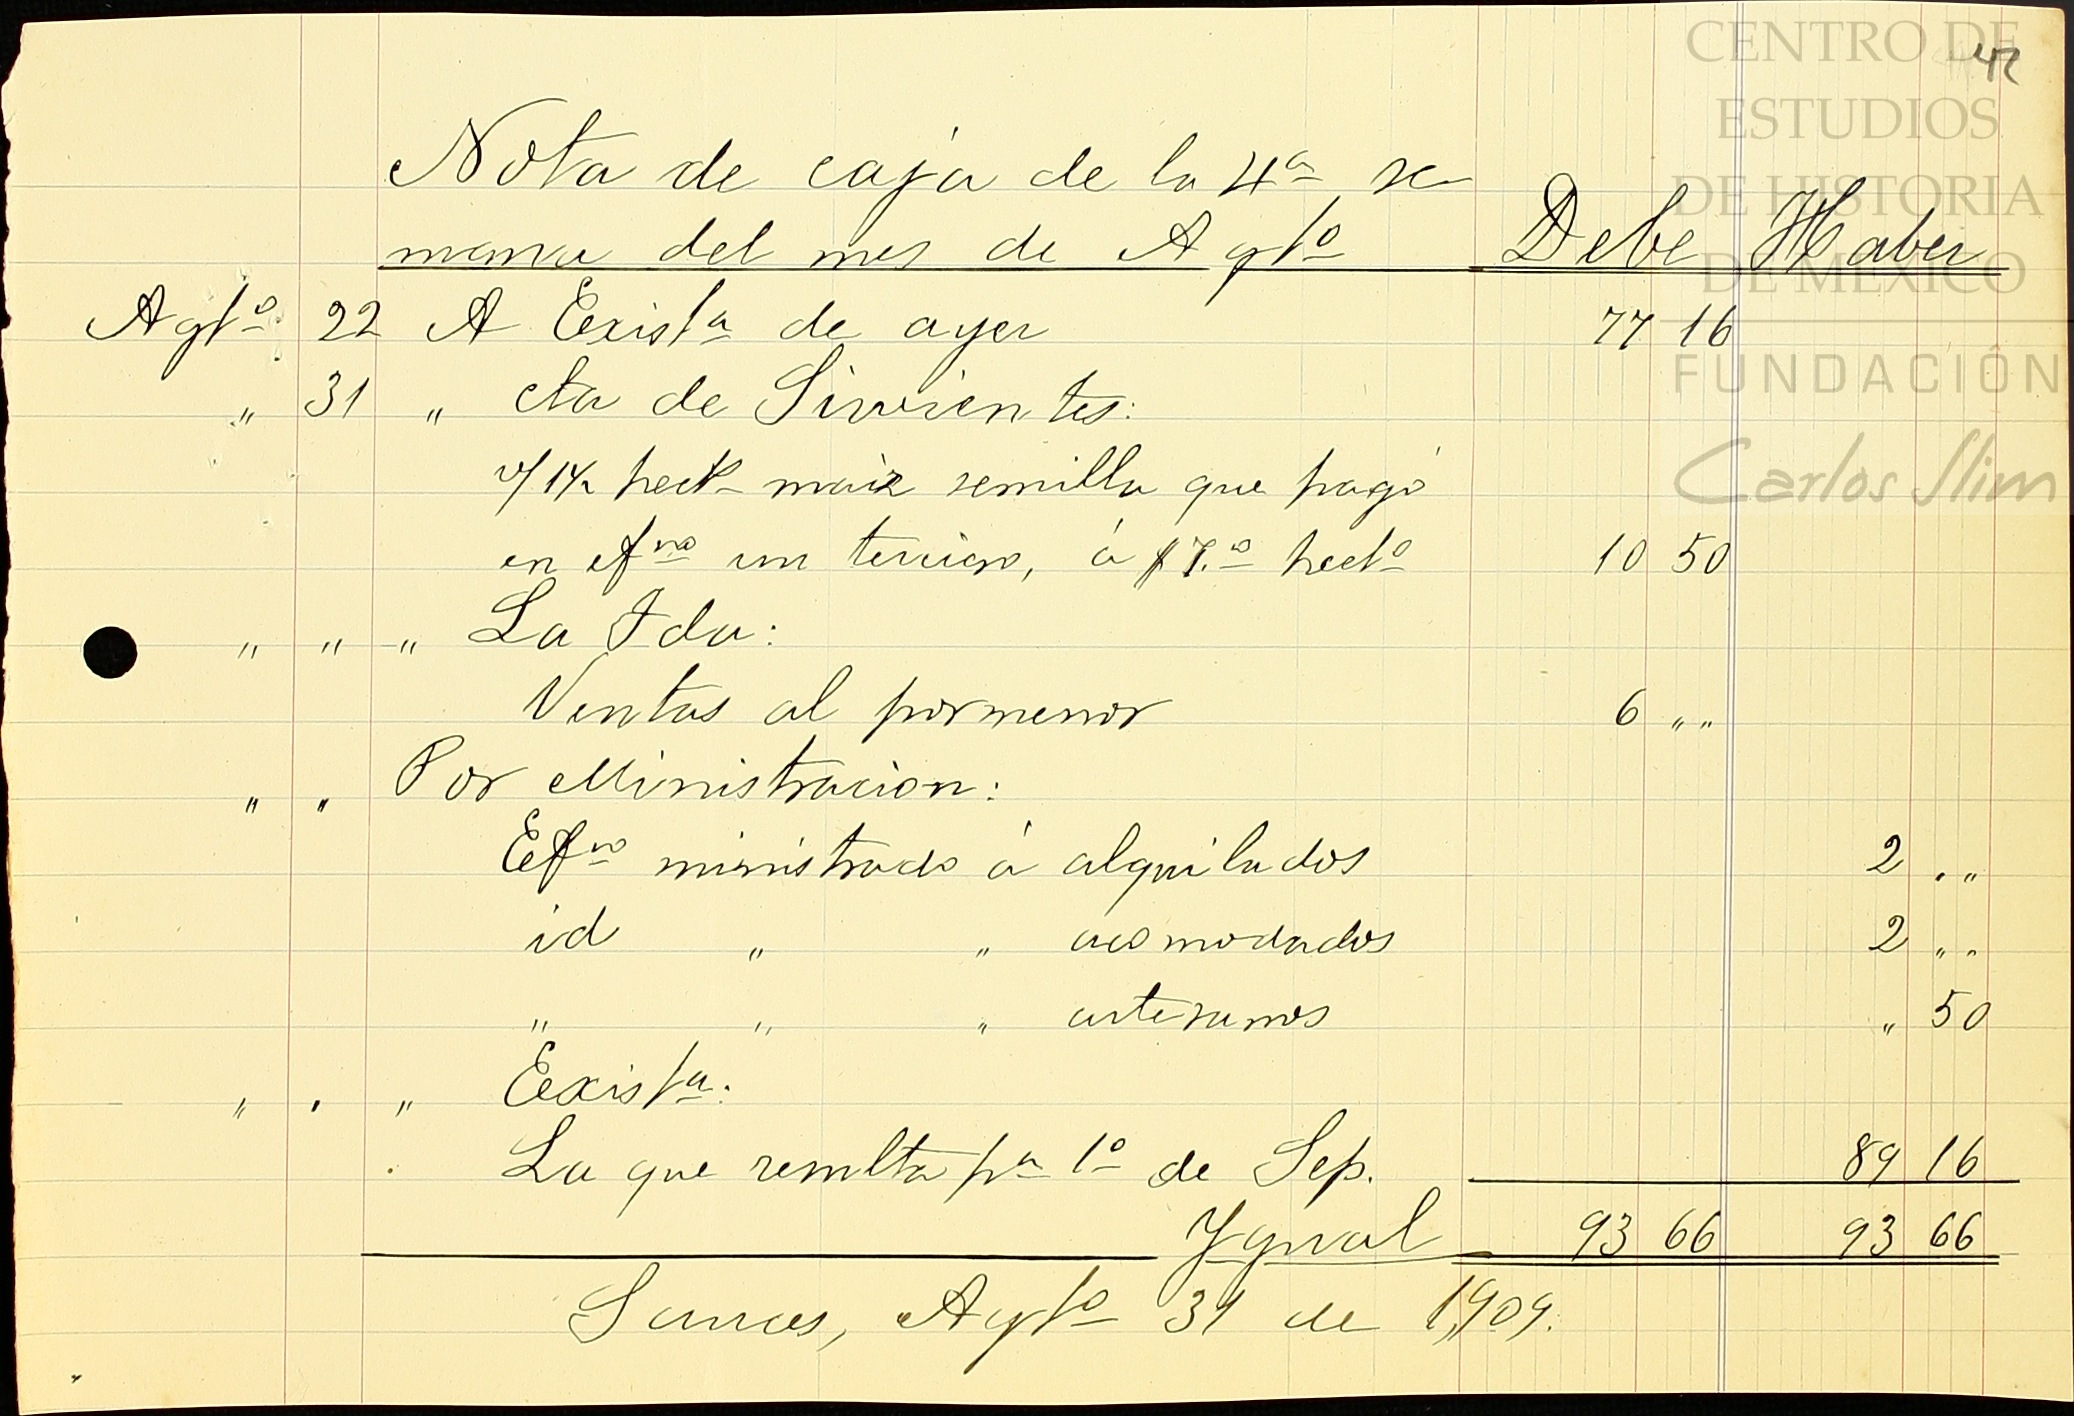 CENTRO DE
ESTUDIOS
DE HISTORIA
DE MÉXICO
FUNDACIÓN
Carlos Slim
42
Nota de caja de la 4ª se
mana del mes de Agtº Debe Haber
Agtº 22 A Existª de ayer 77 16
" 31 " cta de Sirvientes:
v/ 1½ hectˢ maiz semilla que pagó
en efvo un terciero, á $7.º hectº 10 50
" " " La Ida:
Ventas al pormenor 6 " "
" " Por Ministracion:
Efvo ministrado á alquilados 2 " "
id " " acomodados 2 " "
" " " artesanos " 50
" " " Existª:
La que resulta pª 1º de Sep. 89 16
Ygual 93 66 93 66
Sauces, Agtº 31 de 1,909.